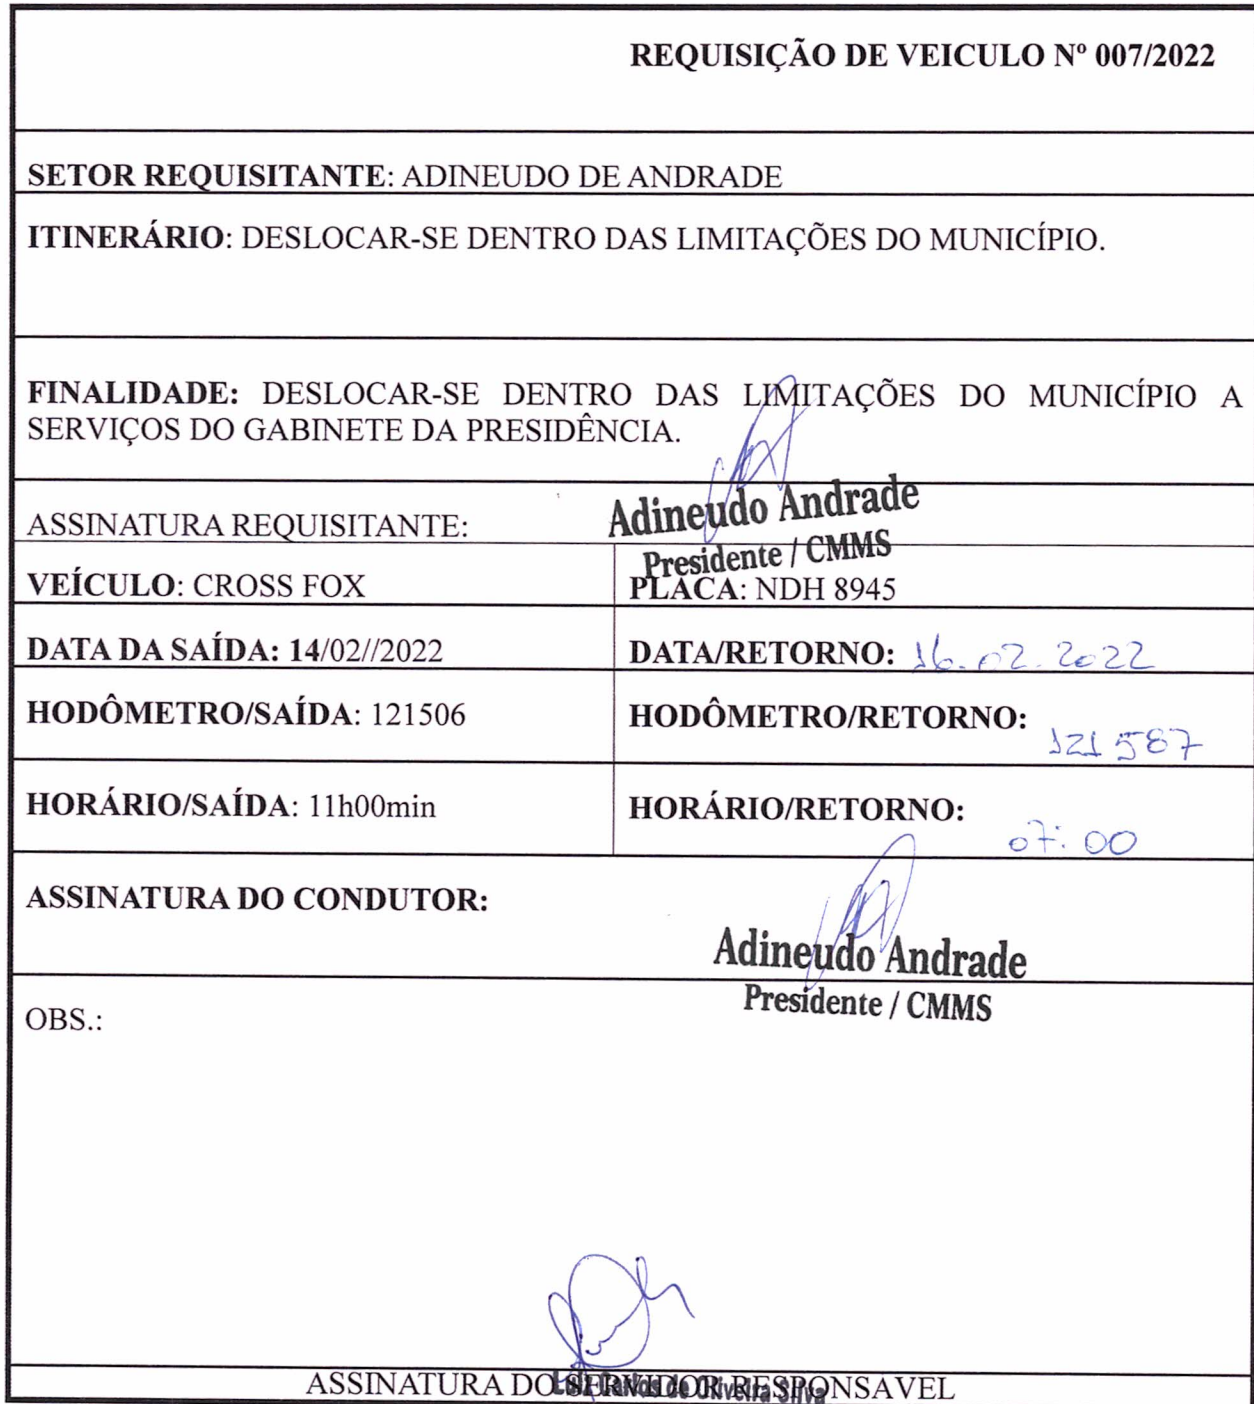 REQUISIÇÃO DE VEICULO Nº 007/2022
SETOR REQUISITANTE: ADINEUDO DE ANDRADE
ITINERÁRIO: DESLOCAR-SE DENTRO DAS LIMITAÇÕES DO MUNICÍPIO.
FINALIDADE: DESLOCAR-SE DENTRO DAS LIMITAÇÕES DO MUNICÍPIO A
SERVIÇOS DO GABINETE DA PRESIDÊNCIA.
ASSINATURA REQUISITANTE: Adineudo Andrade
Presidente / CMMS
VEÍCULO: CROSS FOX PLACA: NDH 8945
DATA DA SAÍDA: 14/02//2022 DATA/RETORNO: 16.02.2022
HODÔMETRO/SAÍDA: 121506 HODÔMETRO/RETORNO: 121587
HORÁRIO/SAÍDA: 11h00min HORÁRIO/RETORNO: 07:00
ASSINATURA DO CONDUTOR:
Adineudo Andrade
Presidente / CMMS
OBS.:
Carlos de Oliveira Silva
ASSINATURA DO SERVIDOR RESPONSAVEL